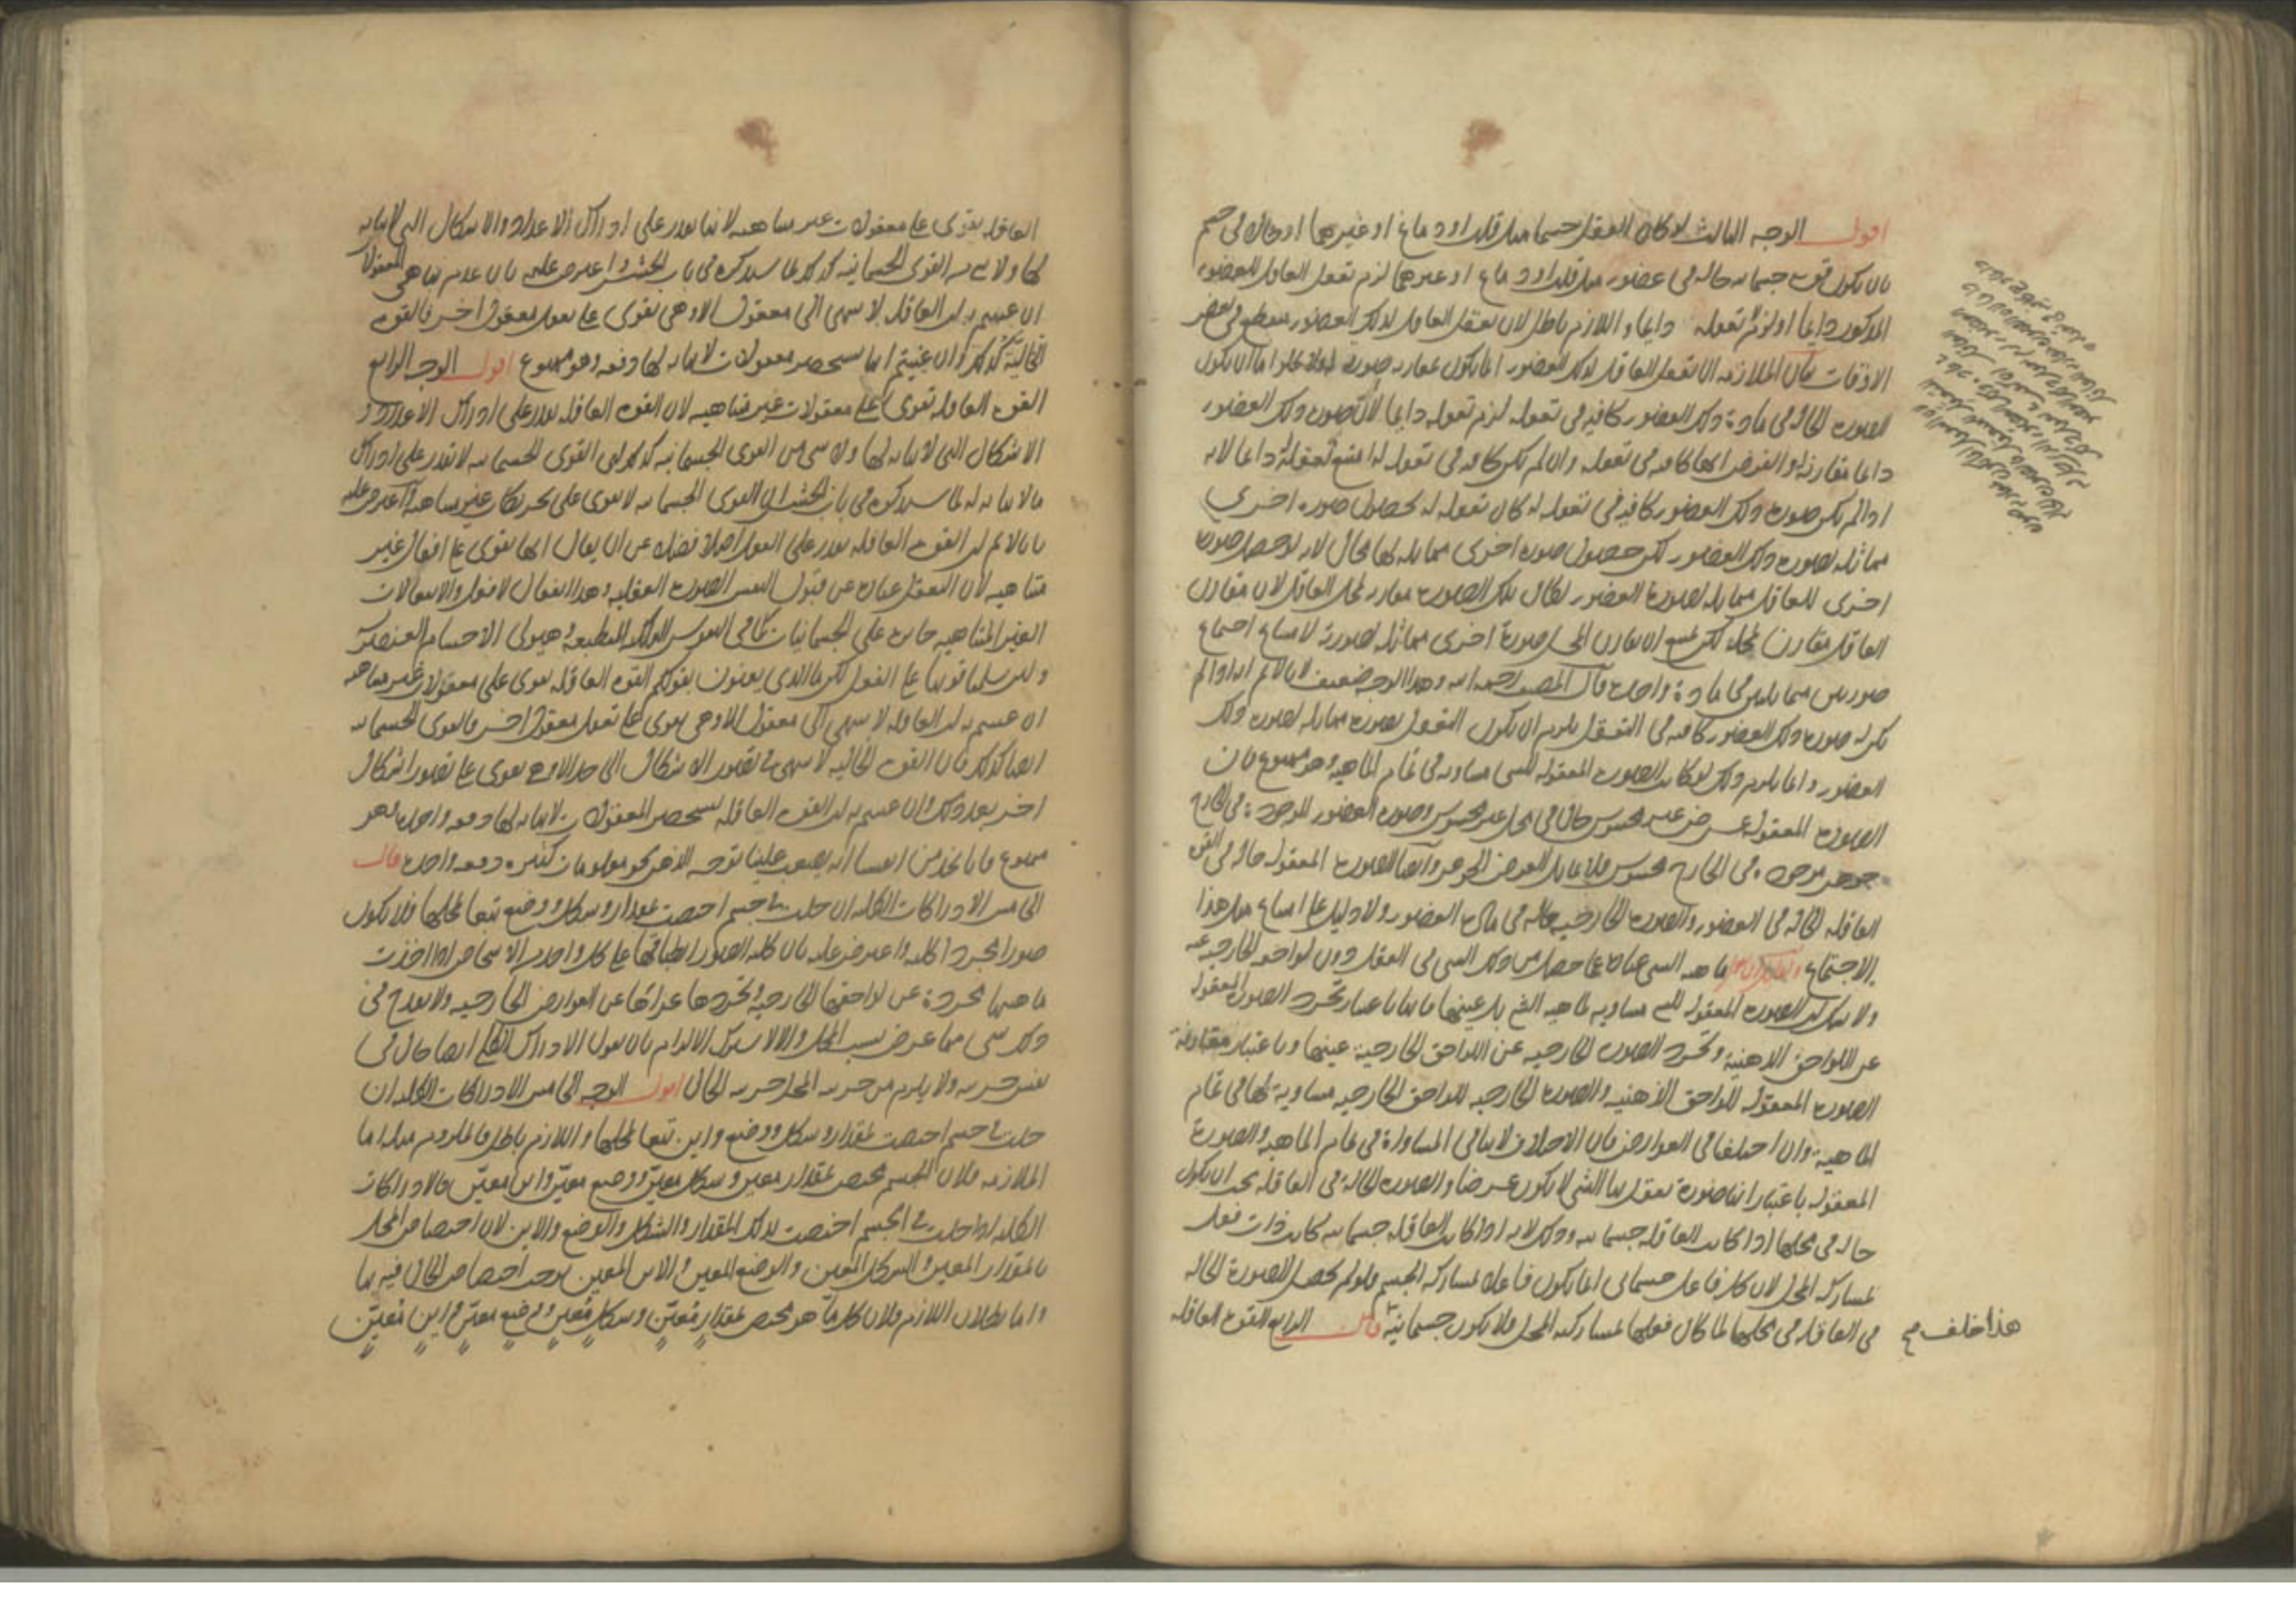 اقول الوجه الثالث لو كان التعقل جسما مثل قلب او دماغ او غيرهما او حالة في جسم
بان يكون قوة جسمانية حالة في عضو مثل قلب او دماغ او غيرهما لزم تعقل العاقل للعضو
المذكور دايما او لزم لا تعقله دايما واللازم باطل لان تعقل العاقل لذلك العضو منقطع في بعض
الاوقات بيان الملازمة ان تعقل العاقل لذلك العضو انما يكون بمقارنة صورته فلا يخلوا اما ان يكون
الصورة الحالة في مادة ذلك العضو كافية في تعقله لزم تعقله دايما لان صورة ذلك العضو
دايما مقارنة له والفرض انها كافية في تعقله وان لم تكن كافية في تعقله له امتنع تعقله له دايما لانه
اذا لم يكن صورة ذلك العضو كافية في تعقله له كان تعقله له بحصول صورة اخرى
مماثلة لصورة ذلك العضو لكن حصول صورة اخرى مماثلة لها محال لانه لو حصل صورة
اخرى للعاقل مماثلة لصورة العضو لكان تلك الصورة مقارنة لمحل العاقل لان مقارن
العاقل مقارن لمحله لكن يمتنع ان يقارن المحل صورة اخرى مماثلة لصورته لامتناع اجتماع
صورتين متماثلتين في مادة واحدة قال المصنف رحمه الله وهذا الوجه ضعيف لانا لا نم انه اذا لم
تكن له صورة ذلك العضو كافية في التعقل يلزم ان يكون التعقل بصورة مماثلة لصورة ذلك
العضو وانما يلزم ذلك لو كانت الصورة المعقولة للشي مساوية في تمام الماهية وهو ممنوع فان
الصورة المعقولة عرض غير محسوس حال في محل غير محسوس وصورة العضو الموجودة في الخارج
جوهر موجود في الخارج محسوس فلا يماثل العرض الجوهر وايضا الصورة المعقولة حالة في القوة
العاقلة الحالة في العضو والصورة الخارجية حالة في مادة العضو ولا دليل على امتناع مثل هذا
الاجتماع ماهية الشي عبارة عما حصل من ذلك الشي في العقل دون لواحقه الخارجية عنه
ولا شك ان الصورة المعقولة للشي مساوية لماهية الشي بل عينها فانها باعتبار تجرد الصورة المعقولة
عن اللواحق الذهنية وتجرد الصورة الخارجية عن اللواحق الخارجية عينها وباعتبار مقارنة
الصورة المعقولة للواحق الذهنية والصورة الخارجية للواحق الخارجية مساوية لها في تمام
الماهية وان اختلفا في العوارض فان الاختلاف لا ينافي المساواة في تمام الماهية والصورة
المعقولة باعتبار انها صورة تعقل بها الشي لا يكون عرضا والصورة الحالة في العاقلة يجب ان يكون
حالة في محلها اذا كانت العاقلة جسمانية وذلك لانه اذا كانت العاقلة جسمانية كانت ذات فعل
بمشاركة المحل لان كل فاعل جسماني انما يكون فاعلا بمشاركة الجسم ولو لم يحصل الصورة الحالة
في العاقلة في محلها لما كان فعلها بمشاركة المحل فلا يكون جسمانية قال الرابع القوة العاقلة
هذا خلف صح
العاقلة تقوى على معقولات غير متناهية لانها تقدر على ادراك الاعداد والاشكال التي لا نهاية
لها ولا شي من القوى الجسمانية كذلك لما سنذكره في باب الحشر واعترض عليه بان عدم تناهي المعقولات
ان عنيتم به ان العاقلة لا تنتهي الى معقول الا وهي تقوى على تعقل معقول اخر فالقوة
الخيالية كذلك وان عنيتم انها تستحضر معقولات لا نهاية لها دفعة فهو ممنوع اقول الوجه الرابع
القوة العاقلة تقوى على معقولات غير متناهية لان القوة العاقلة تقدر على ادراك الاعداد و
الاشكال التي لا نهاية لها ولا شي من القوى الجسمانية كذلك اي القوى الجسمانية لا تقدر على ادراك
ما لا نهاية له لما سنذكره في باب الحشر ان القوى الجسمانية لا تقوى على تحريكات غير متناهية اعترض عليه
بانا لا نم ان القوة العاقلة تقدر على الفعل اصلا فضلا عن ان يقال انها تقوى على افعال غير
متناهية لان التعقل عبارة عن قبول النفس الصورة العقلية وهذا انفعال لا فعل والانفعالات
الغير المتناهية جايزة على الجسمانيات كما في النفوس الفلكية المنطبعة وهيولى الاجسام العنصرية
ولين سلمنا قوتها على الفعل لكن ما الذي يعنون بقولكم القوة العاقلة تقوى على معقولات غير متناهية
ان عنيتم به ان العاقلة لا تنتهي الى معقول الا وهي تقوى على تعقل معقول اخر فالقوى الجسمانية
ايضا كذلك فان القوة الخيالية لا تنتهي في تصور الاشكال الى حد الا وهي تقوى على تصور اشكال
اخر بعد ذلك وان عنيتم به ان القوة العاقلة تستحضر المعقولات لا نهاية لها دفعة واحدة فهو
ممنوع فانا نجد من انفسنا انه يصعب علينا توجه الذهن نحو معلومات كثيرة دفعة واحدة قال
الخامس الادراكات الكلية ان حلت في جسم اختصت بمقدار وشكل ووضع تبعا لمحلها فلا يكون
صورا مجردة كلية واعترض عليه بان كلية الصور انطباقها على كل واحد من الاشخاص اذا اخذت
ماهيتها مجردة عن لواحقها الخارجية وتجردها عراتها عن العوارض الخارجية ولا يقدح في
ذلك شي مما عرض بسبب المحل والا لاشترك الالزام بان نقول الادراك الكلي ايضا حال في
نفس جزئية ولا يلزم من جزئية المحل جزئية الحال اقول الوجه الخامس الادراكات الكلية ان
حلت في جسم اختصت بمقدار وشكل ووضع واين تبعا لمحلها واللازم باطل فالملزوم مثله اما
الملازمة فلان الجسم مختص بمقدار معين وشكل معين ووضع معين واين معين فالادراكات
الكلية اذا حلت في الجسم اختصت بذلك المقدار والشكل والوضع والاين لان اختصاص المحل
بالمقدار المعين والشكل المعين والوضع المعين والاين المعين يوجب اختصاص الحال فيه بها
واما بطلان اللازم فلان كل ما هو مختص بمقدار معين وشكل معين ووضع معين واين معين